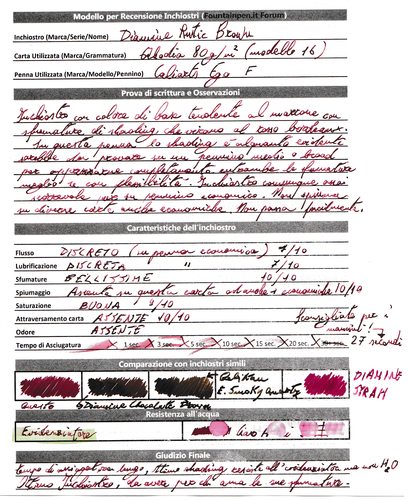 Modello per Recensione Inchiostri (Fountainpen.it Forum)
Inchiostro (Marca/Serie/Nome) Diamine Rustic Brown
Carta Utilizzata (Marca/Grammatura) 80g/m² (modello 16)
Penna Utilizzata (Marca/Modello/Pennino) Caliarts Ego F
Prova di scrittura e Osservazioni
Inchiostro con colore di base tendente al marrone con
sfumature di shading che virano al rosso bordeaux.
In questa penna lo shading è alquanto evidente
su un pennino medio o broad
per apprezzare completamente entrambe le sfumature
meglio se con flessibilità. Inchiostro comunque assai
su pennino economico. Non spiuma
su diverse carte anche economiche. Non passa facilmente.
Caratteristiche dell'inchiostro
Flusso DISCRETO (in penna economica) 7/10
Lubrificazione DISCRETA " 7/10
Sfumature BELLISSIME 10/10
Spiumaggio Assente su questa carta ed anche + economiche 10/10
Saturazione BUONA 8/10
Attraversamento carta ASSENTE 10/10 Sconsigliato per i
Odore ASSENTE mancini!
Tempo di Asciugatura 1 sec. 3 sec. 5 sec. 10 sec. 15 sec. 20 sec. 27 secondi
Comparazione con inchiostri simili
E. Smoky Quartz DIAMINE
SYRAH
Questo Diamine Chocolate Brown
Resistenza all'acqua
Evidenziatore
Giudizio Finale
lungo, ottimo shading resiste all'evidenziatore ma non H₂O
Ottimo Inchiostro, da avere per chi ama le sue sfumature.